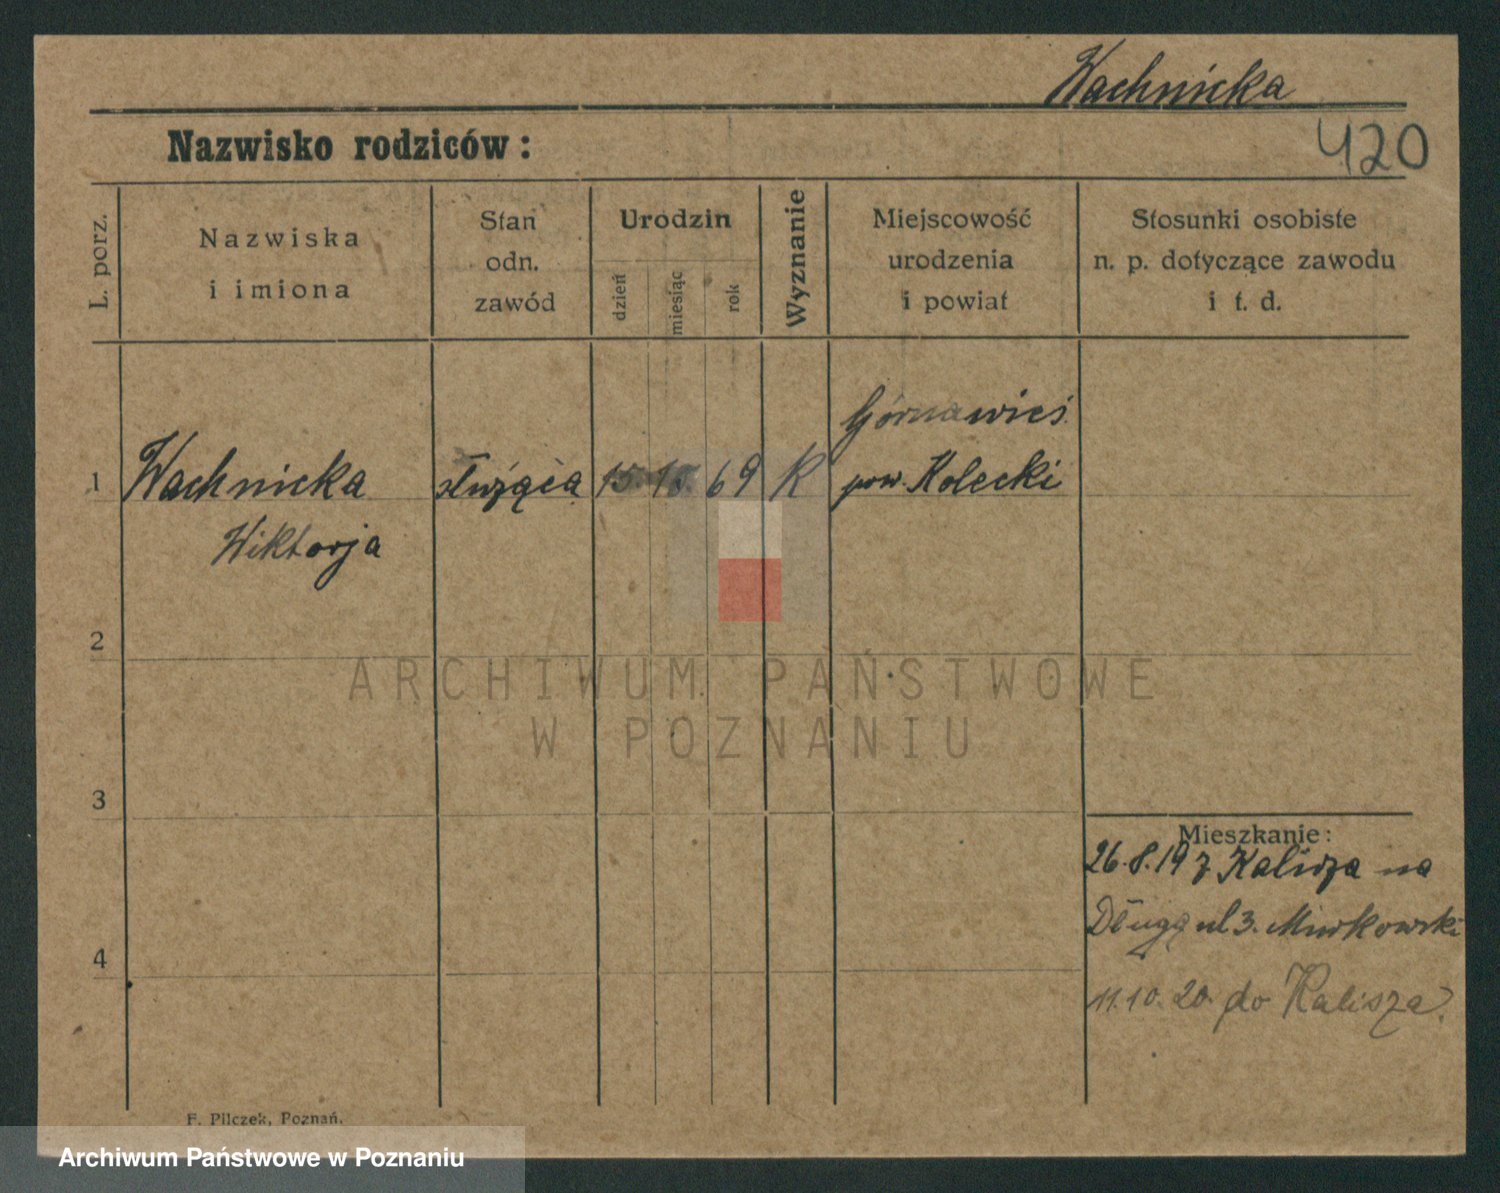 Wachnicka
420
Nazwisko rodziców:
L. porz.
Nazwiska
i imiona
Stan
odn.
zawód
Urodzin
dzień
miesiąc
rok
Wyznanie
Miejscowość
urodzenia
i powiat
Stosunki osobiste
n. p. dotyczące zawodu
i t. d.
Górnawieś
1 Wachnicka służąca 15. 69 K pow. Kolecki
Wiktorja
2
ARCHIWUM PAŃSTWOWE
W POZNANIU
3
Mieszkanie:
26.8.19 z Kalisza na
Długą ul 3.
4
11.10.20. do Kalisza.
F. Pilczek, Poznań.
Archiwum Państwowe w Poznaniu